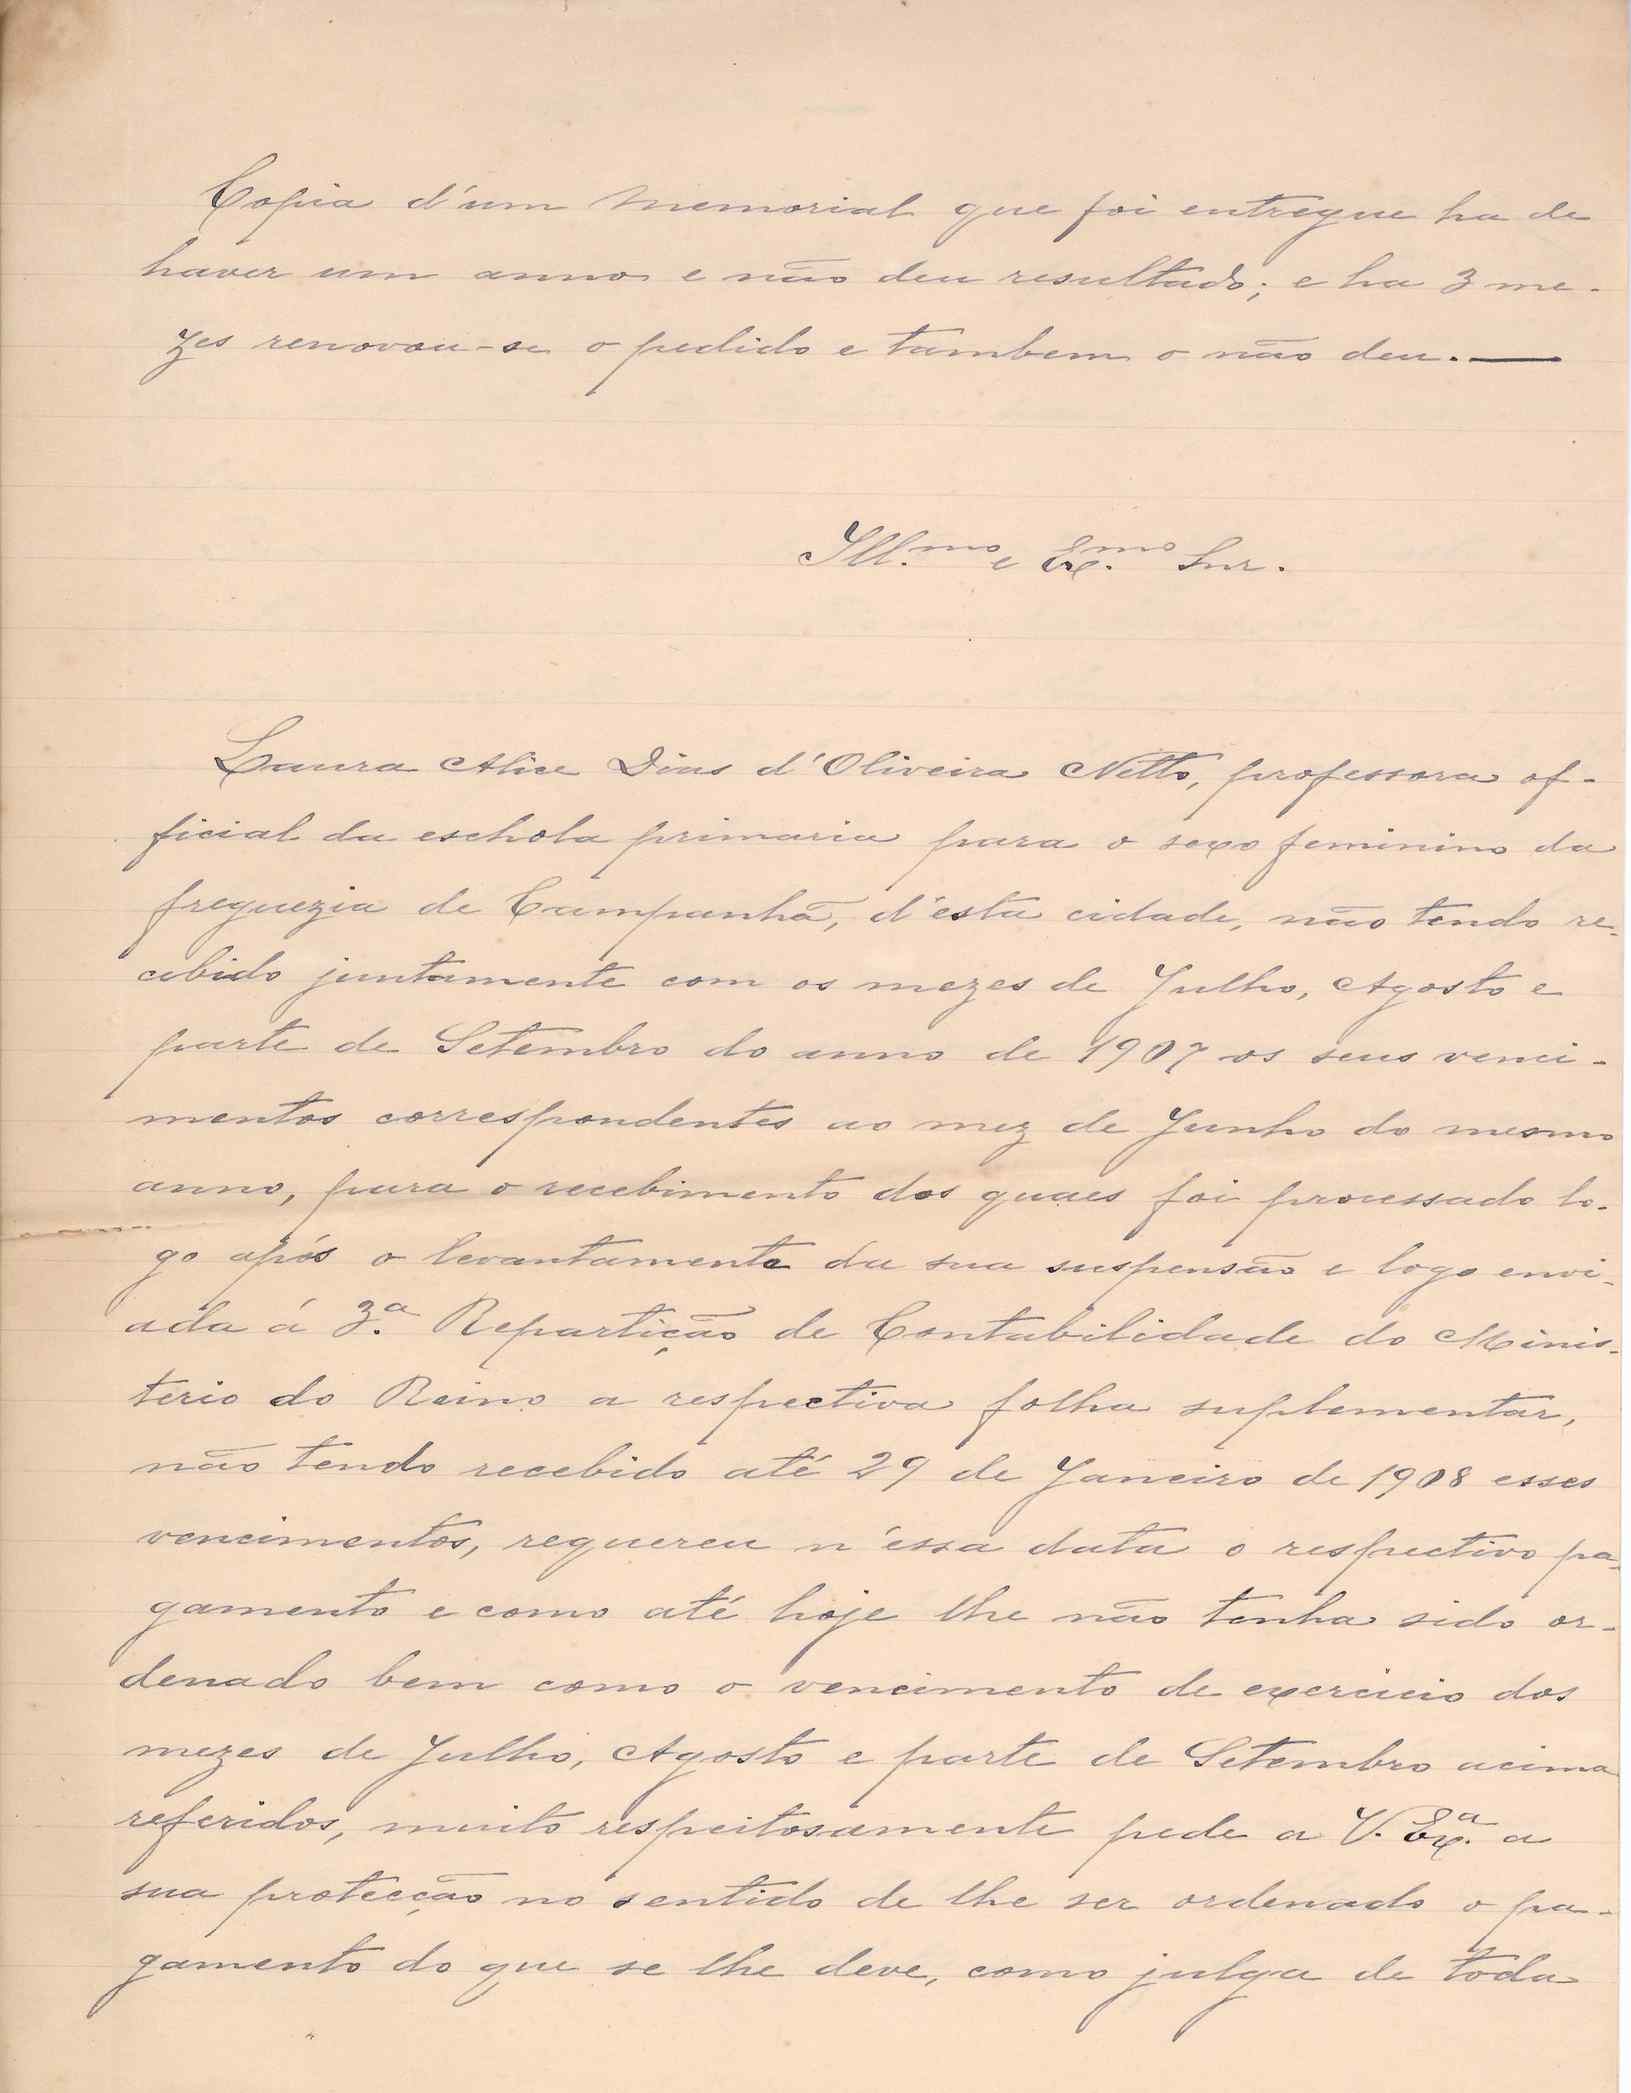 Copia d'um Memorial que foi entregue ha de
haver um anno e não deu resultado; e ha 3 me-
zes renovou-se o pedido e tambem o não deu.—
Ill.mo e Ex.mo Snr.
Laura Alice Dias d'Oliveira Netto, professora of-
ficial da eschola primaria para o sexo feminino da
freguezia de Campanhã, d'esta cidade, não tendo re-
cebido juntamente com os mezes de Julho, Agosto e
parte de Setembro do anno de 1907 os seus venci-
mentos correspondentes ao mez de Junho do mesmo
anno, para o recebimento dos quaes foi processado lo-
go após o levantamento da sua suspensão e logo envi-
ada á 3.a Repartição de Contabilidade do Minis-
terio do Reino a respectiva folha suplementar,
não tendo recebido até 29 de Janeiro de 1908 esses
vencimentos, requereu n'essa data o respectivo pa-
gamento e como até hoje lhe não tenha sido or-
denado bem como o vencimento de exercicio dos
mezes de Julho, Agosto e parte de Setembro acima
referidos, muito respeitosamente pede a V. Ex.a a
sua protecção no sentido de lhe ser ordenado o pa-
gamento do que se lhe deve, como julga de toda